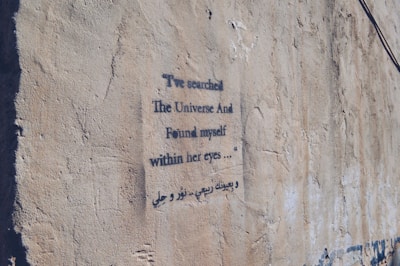 "I've searched
The Universe And
Found myself
within her eyes ..."
و بعيونك ربيعي .. نوّر و حلي